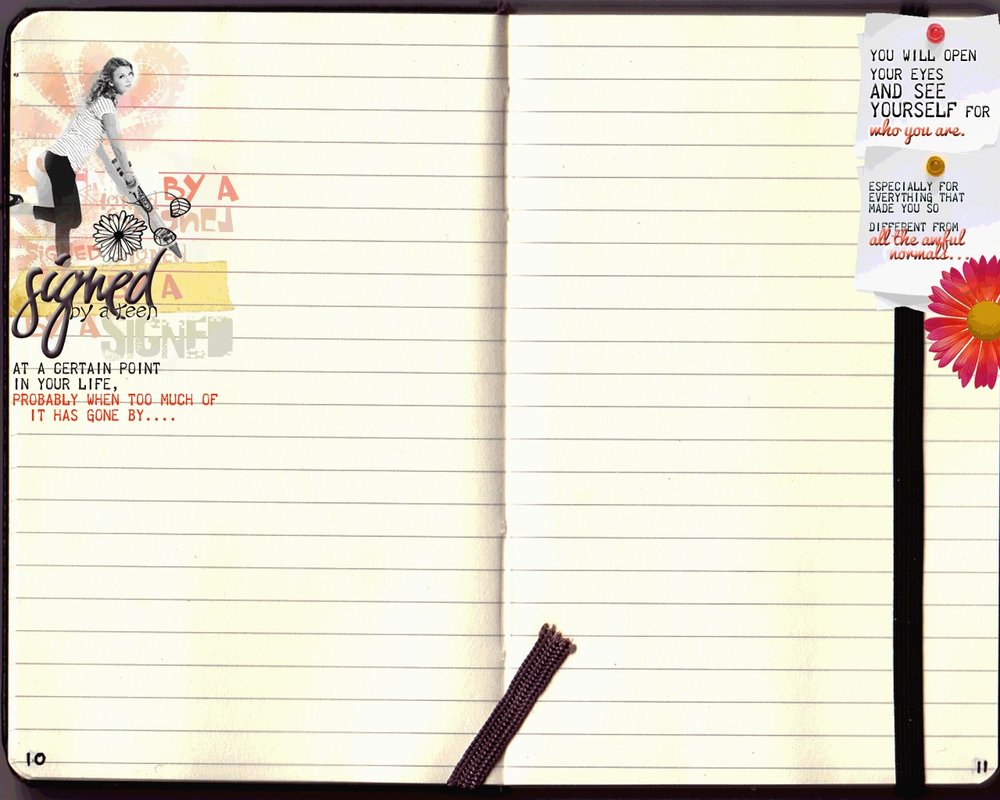 BY A
SIGNED
signed
by a teen
A
SIGNED
AT A CERTAIN POINT
IN YOUR LIFE,
PROBABLY WHEN TOO MUCH OF
IT HAS GONE BY....
10
YOU WILL OPEN
YOUR EYES
AND SEE
YOURSELF FOR
who you are.
ESPECIALLY FOR
EVERYTHING THAT
MADE YOU SO
DIFFERENT FROM
all the awful
normals...
11